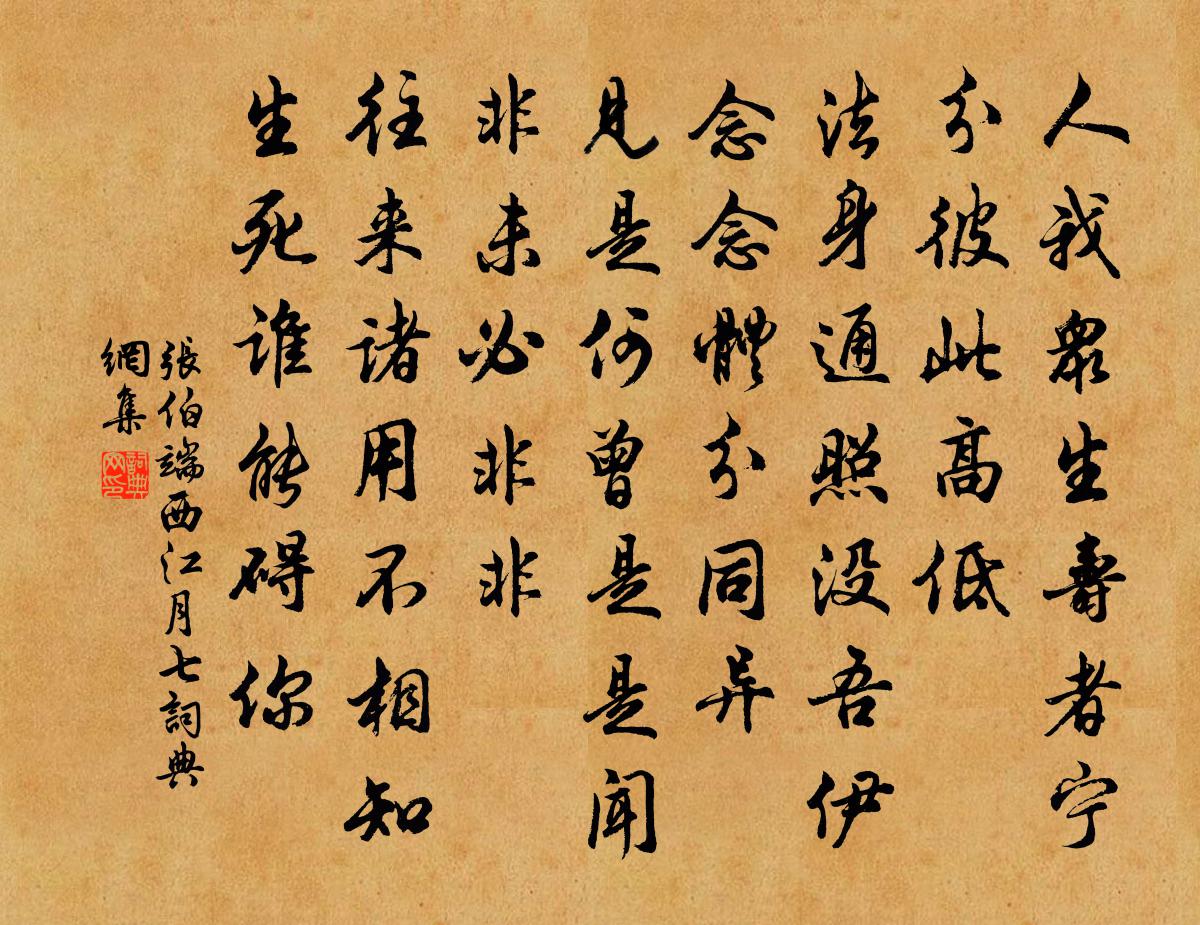 人我衆生壽者宁
分彼此高低
法身通照没吾伊
念念體分同异
見是何曾是是聞
非未必非非
往来诸用不相知
生死谁能碍你
張伯端西江月七詞典
網集
詞典
网印